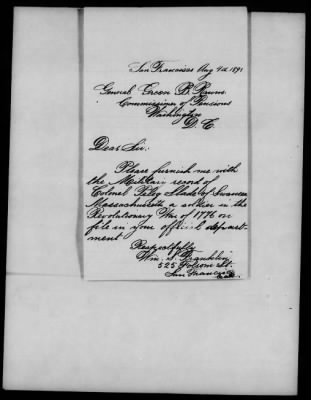 San Francisco Aug 9th 1891
General Green B. Raum
Commissioner of Pensions
Washington
D. C.
Dear Sir:
Please furnish me with
the Military record of
Colonel Peleg Slade of Swansea
Massachusetts a soldier in the
Revolutionary War of 1776 on
file in your official depart-
ment
Respectfully
Wm. S. Franklin
525 Folsom St.
San Francisco